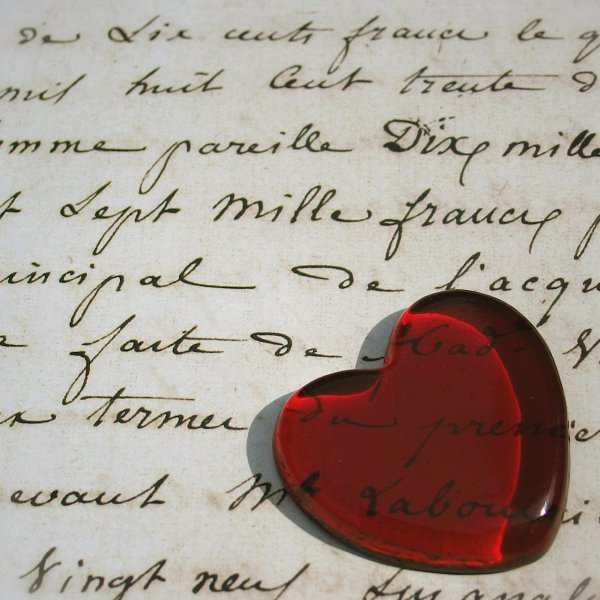 de Six cents francs le q
mil huit Cent trente d
omme pareille Dix mille
t Sept Mille francs p
incipal de l'acqu
faite de Mad.e V
termes du premie
evant Mt Labou
Vingt neuf